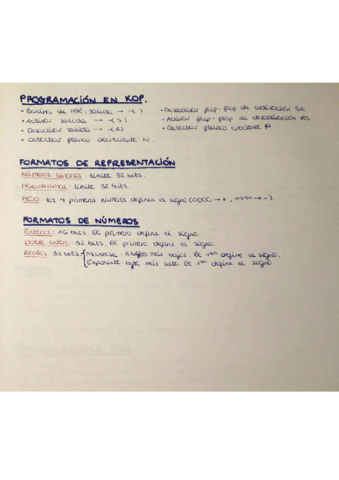 PROGRAMACIÓN EN KOP.
• Bobina de relé, salida → -( )
• Activar salida → -(S)
• Desactivar salida → -(R)
• Detectar flanco decreciente N.
• Desactivar flip-flop de activación SR
• Activar flip-flop de desactivación RS
• Detectar flanco creciente P
FORMATOS DE REPRESENTACIÓN
Números binarios: límite 32 bits.
Hexadecimal: límite 32 bits.
BCD: los 4 primeros números definen el signo (0000 → +, 1111 → -).
FORMATOS DE NÚMEROS
Enteros: 16 bits. El primero define el signo.
Doble entero: 32 bits. El primero define el signo.
Reales: 32 bits { Mantisa: 3 bytes más bajos. El 1er define el signo.
Exponente: byte más alto. El 1er define el signo.